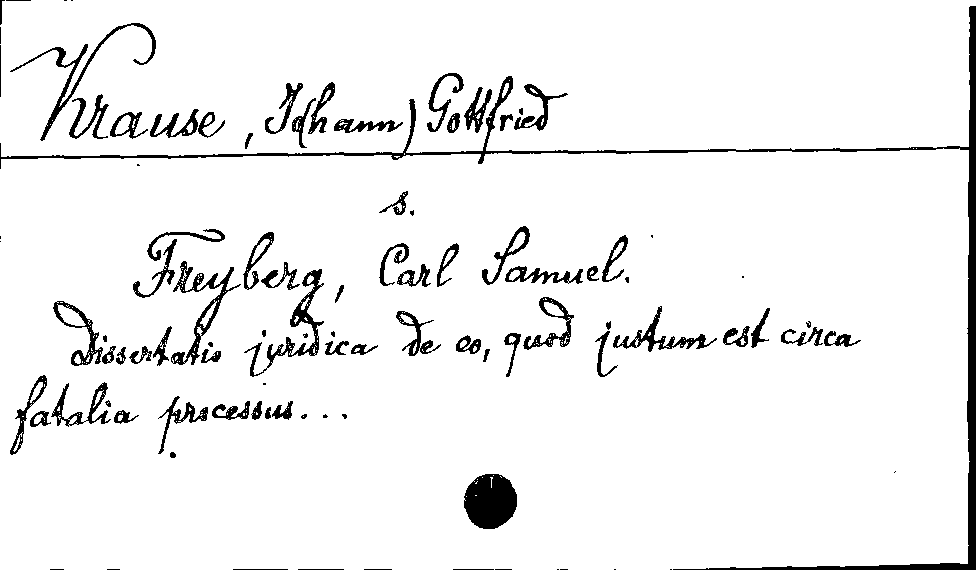 Krause, Jo(hann) Gottfried
s.
Freyberg, Carl Samuel.
Dissertatio juridica de eo, quod justum est circa
fatalia processus...